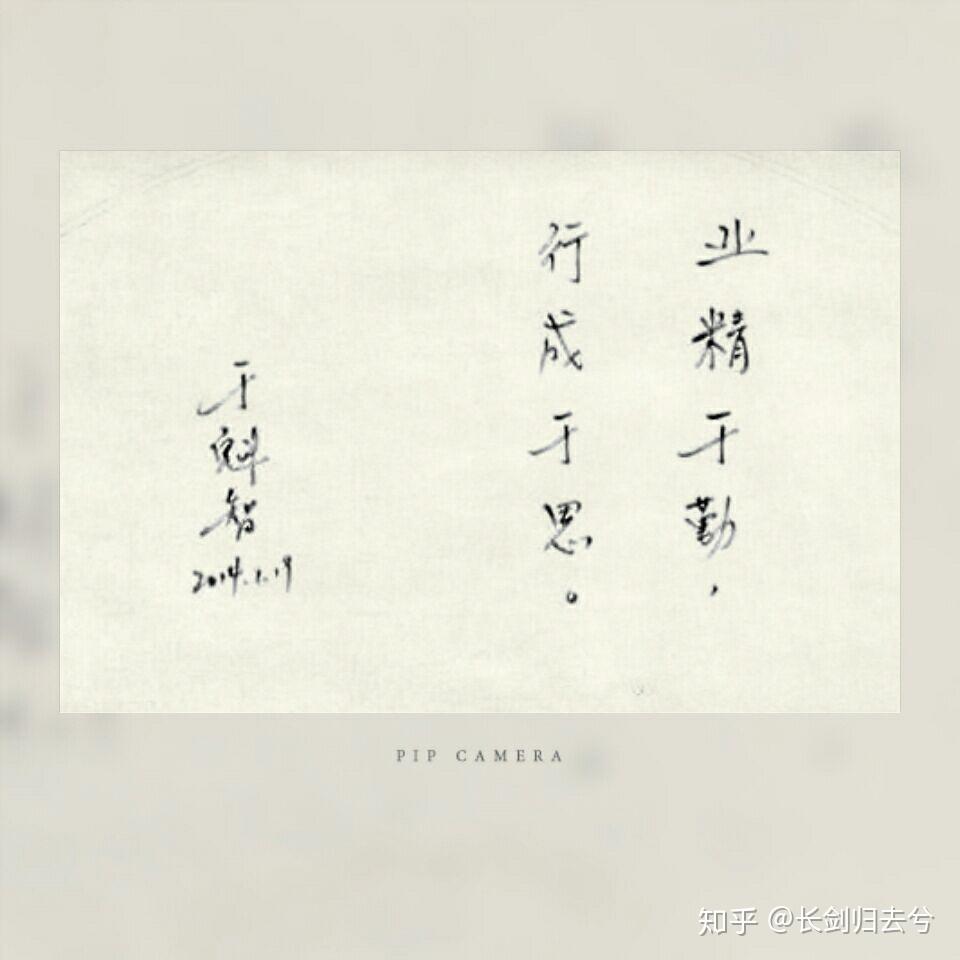 业精于勤，
行成于思。
于魁智
2014.1.19
PIP CAMERA
知乎 @长剑归去兮